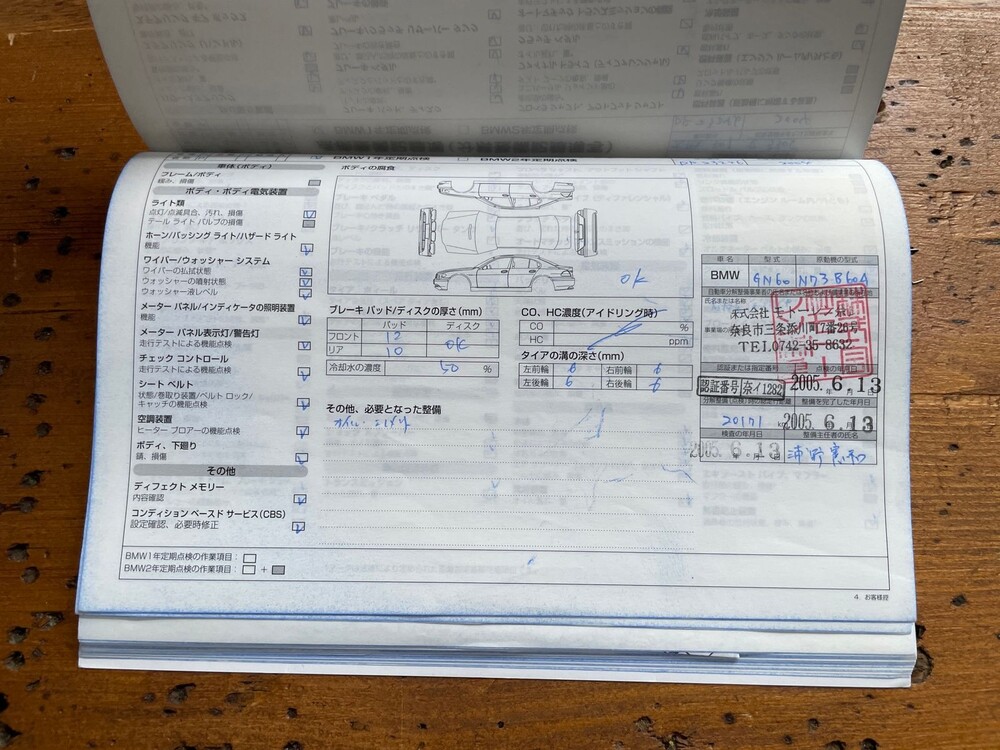 車体(ボディ)
フレーム/ボディ
緩み、損傷
ボディ・ボディ電気装置
ライト類
点灯/点滅具合、汚れ、損傷
テール ライト バルブの損傷
ホーン/パッシング ライト/ハザード ライト
機能
ワイパー/ウォッシャー システム
ワイパーの払拭状態
ウォッシャーの噴射状態
ウォッシャー液レベル
メーター パネル/インディケータの照明装置
機能
メーター パネル表示灯/警告灯
走行テストによる機能点検
チェック コントロール
走行テストによる機能点検
シート ベルト
状態/巻取り装置/ベルト ロック/
キャッチの機能点検
空調装置
ヒーター ブロアーの機能点検
ボディ、下廻り
錆、損傷
その他
ディフェクト メモリー
内容確認
コンディション ベースド サービス(CBS)
設定確認、必要時修正
BMW1年定期点検の作業項目:
BMW2年定期点検の作業項目: +
ボディの腐食
OK
ブレーキ パッド/ディスクの厚さ(mm)
パッド ディスク
フロント 12
リア 10 OK
冷却水の濃度 50 %
CO、HC濃度(アイドリング時)
CO %
HC ppm
タイアの溝の深さ(mm)
左前輪 6 右前輪 6
左後輪 6 右後輪 6
その他、必要となった整備
車名 型式 原動機の型式
BMW GN60 N73B60A
氏名または名称
株式会社 モトーレン奈良
奈良市三条添川町7番26号
TEL.0742-35-8632
認証または指定番号 点検の年月日
認証番号 奈イ1282 2005.6.13
整備を完了した年月日
20171 km 2005.6.13
検査の年月日 整備主任者の氏名
2005.6.13
4. お客様控